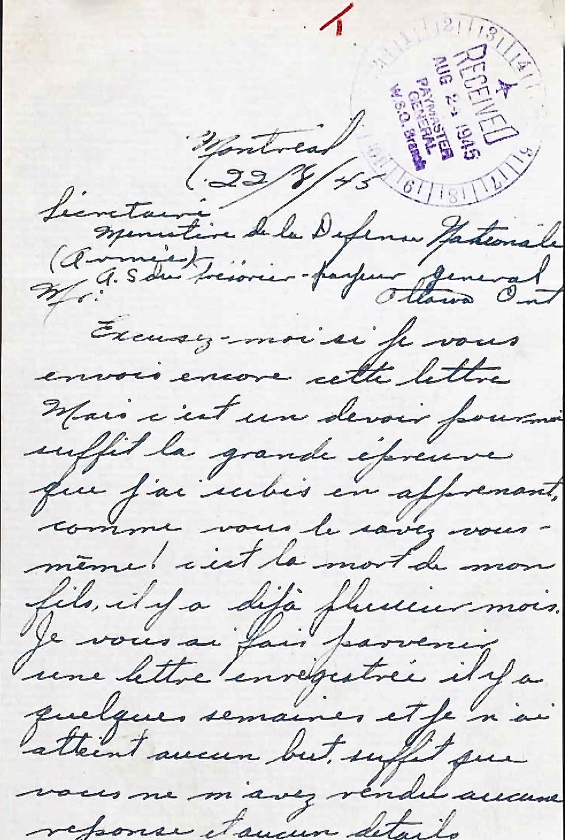 1
RECEIVED
AUG 24 1945
PAYMASTER
GENERAL
W.S.G. Branch
Montréal
22/8/45
Sécretaire
Ministère de la Defense Nationale
(Armées)
A. S du trésorier-payeur general
Mr: Ottawa Ont
Excusez-moi si je vous
envois encore cette lettre
Mais c'est un devoir pour moi
suffit la grande épreuve
que j'ai subis en apprenant,
comme vous le savez vous-
même! c'est la mort de mon
fils, il y a déjà plusieur mois.
Je vous ai fais parvenir
une lettre enregistrée il y a
quelques semaines et je n'ai
atteint aucun but, suffit que
vous ne m'avez rendu aucune
reponse et aucun details